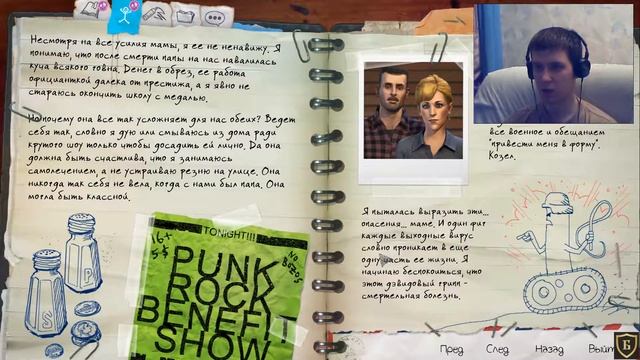 Несмотря на все усилия мамы, я ее не ненавижу. Я
понимаю, что после смерти папы на нас навалилась
куча всякого говна. Денег в обрез, ее работа
официанткой далека от престижа, а я явно не
стараюсь окончить школу с медалью.
Но почему она все так усложняет для нас обеих? Ведет
себя так, словно я дую или смываюсь из дома ради
крутого шоу только чтобы досадить ей лично. Да она
должна быть счастлива, что я занимаюсь
самолечением, а не устраиваю резню на улице. Она
никогда так себя не вела, когда с нами был папа. Она
могла быть классной.
TONIGHT!!!
16+
5$
NO
PUNK
ROCK
BENEFIT
SHOW
S
P
все военное и обещанием
"привести меня в форму".
Козел.
Я пыталась выразить эти...
опасения... маме. И один
каждые выходные вирус
словно проникает в еще
одну часть ее жизни. Я
начинаю беспокоиться, что
этот дэвидовый грипп -
смертельная болезнь.
Пред
След
Назад
Выйт
Б